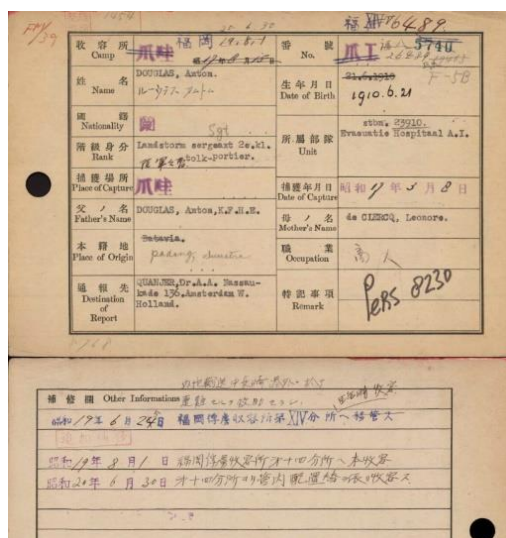 1454
福岡 6489.
收容所 Camp 爪哇 福岡 19.8.1
番號 No. 爪工 5740
F-5B
姓名 Name DOUGLAS, Anton.
生年月日 Date of Birth 21.6.1910
1910.6.21
國籍 Nationality 蘭
階級身分 Rank Landstorm sergeant 2e.kl. tolk-portier.
Sgt
所屬部隊 Unit stbm. 23910. Evacuatie Hospitaal A.I.
捕獲場所 Place of Capture 爪哇
捕獲年月日 Date of Capture 昭和17年3月8日
父ノ名 Father's Name DOUGLAS, Anton,K.F.H.E.
母ノ名 Mother's Name de CLERCQ, Leonore.
本籍地 Place of Origin Batavia.
padang, sumatra
職業 Occupation 商人
通報先 Destination of Report QUANJER,Dr.A.A. Nassau-
kade 136.Amsterdam W.
Holland.
特記事項 Remark PERS 8230
補修欄 Other Informations
昭和19年6月24日 福岡俘虜收容所第XIV分所へ移管ス
昭和19年8月1日 福岡俘虜收容所オ十四分所へ本收容
昭和20年6月30日 オ十四分所ヨリ管内